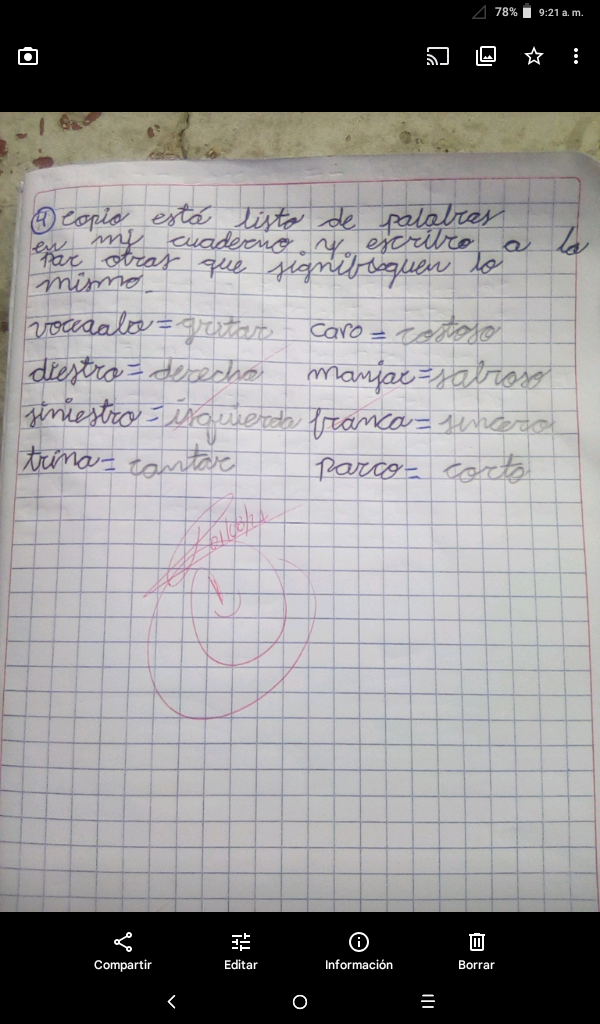 78% 9:21 a. m.
4 Copio está lista de palabras
en mi cuaderno y escribo a la
Par otras que signifiquen lo
mismo.
= gritar caro = costoso
diestro = derecha manjar = sabroso
siniestro = isquierda franca = sincero
trina = cantar parco = corto
Compartir Editar Información Borrar